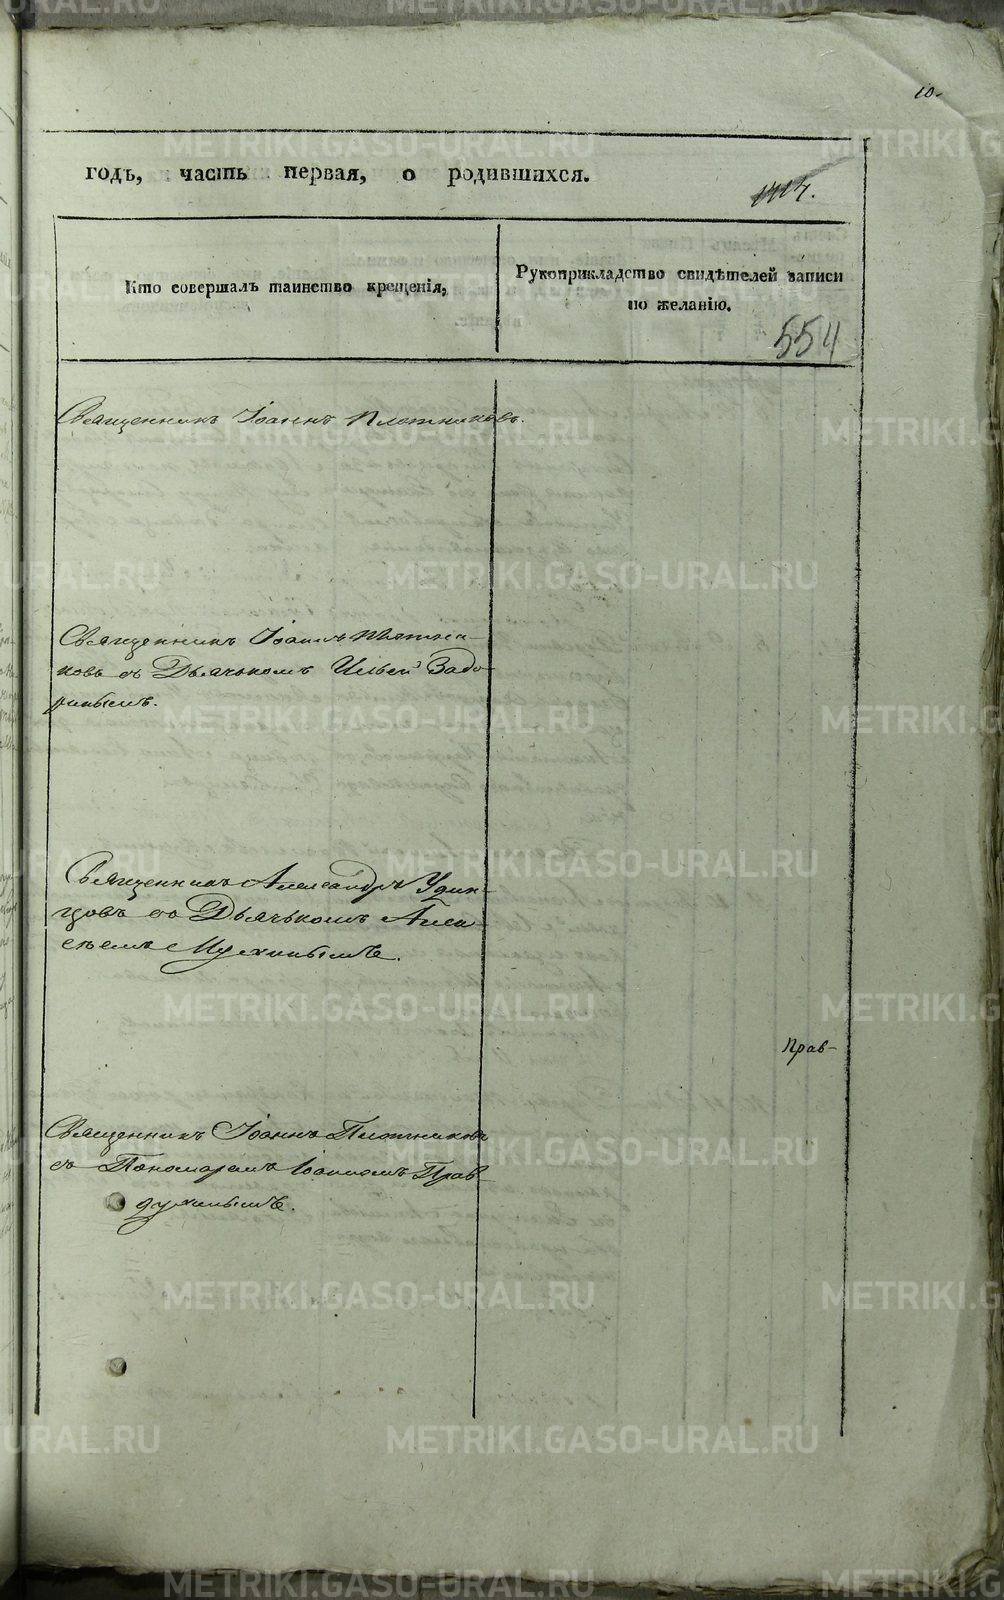 10.
годъ, часть первая, о родившихся.
Кто совершалъ таинство крещенія,
Рукоприкладство свидѣтелей записи
по желанію.
554
Священникъ Іоаннъ Плотниковъ.
Священникъ Іоаннъ Плотни-
ковъ съ Дьячькомъ Ильей Задо-
ринымъ.
Священникъ Александръ Удин-
цовъ со Дьячькомъ Алек-
сѣемъ Мухинымъ.
Прав-
Священникъ Іоаннъ Плотниковъ
съ Пономаремъ Іоанномъ Прав-
духинымъ.
METRIKI.GASO-URAL.RU